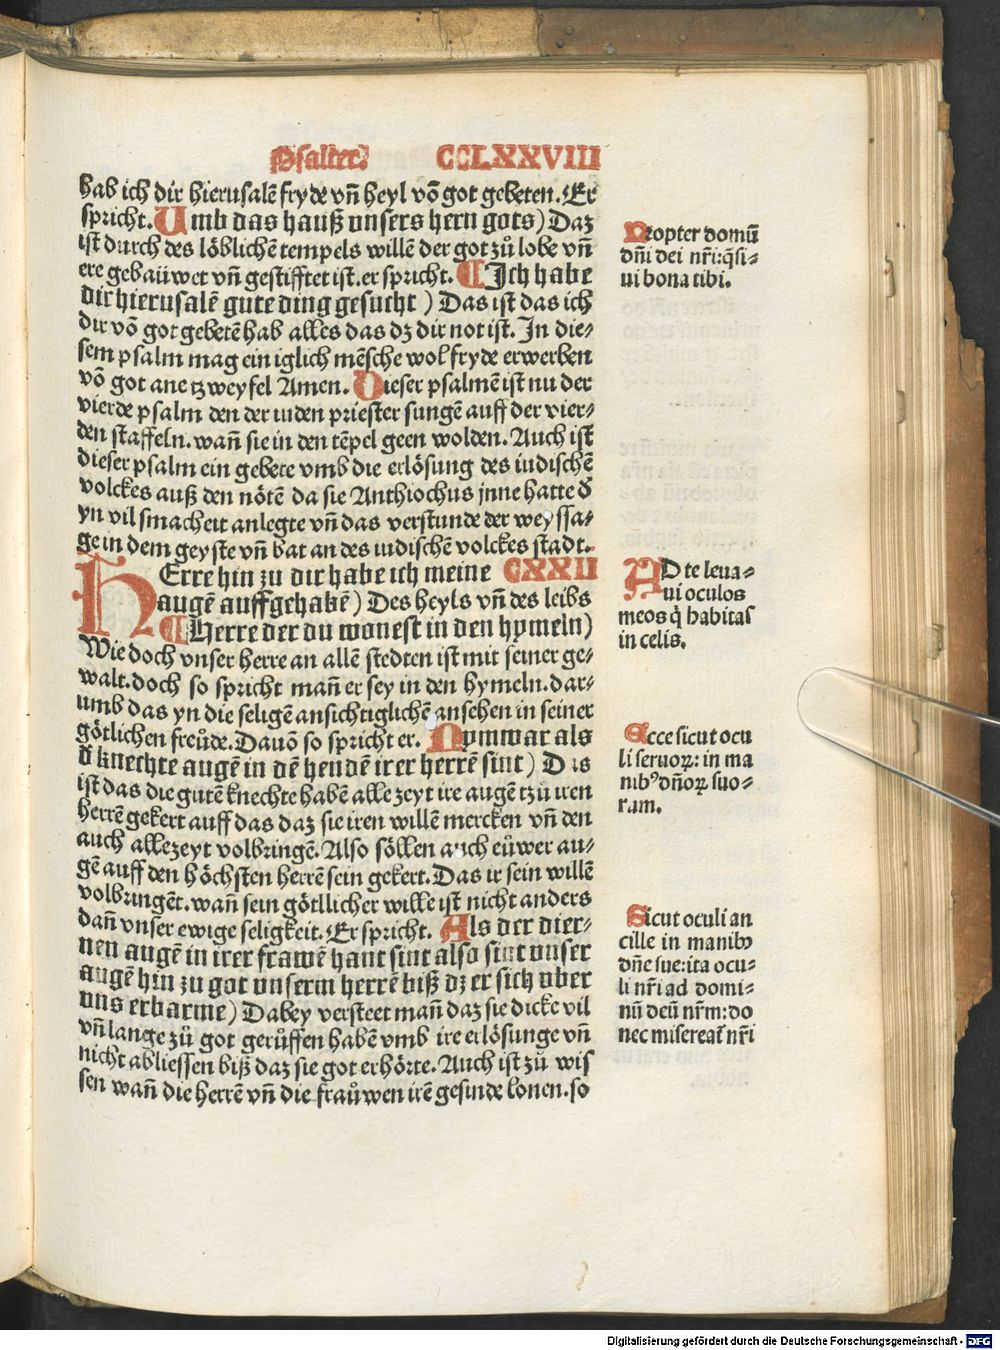 Psalter CCLXXVIII
hab ich dir hierusalē fryde vñ heyl vō got gebeten. Er
spricht. Umb das hauß vnsers hern gots) Daz
ist durch des löblichē tempels willē der got zů lobe vñ
ere gebaüwet vñ gestifftet ist. er spricht. ¶ Ich habe
dir hierusalē gute ding gesucht) Das ist das ich
dir vō got gebetē hab alles das dz dir not ist. In die⸗
sem psalm mag ein iglich mēsche wol fryde erwerben
vō got ane tzweyfel Amen. Dieser psalmē ist nu der
vierde psalm den der iuden priester sungē auff der vier⸗
den staffeln. wañ sie in den tēpel geen wolden. Auch ist
dieser psalm ein gebete vmb die erlösung des iudischē
volckes auß den nötē da sie Anthiochus jnne hatte d̄
yn vil smacheit anlegte vñ das verstunde der weyssa⸗
ge in dem geyste vñ bat an des iudischē volckes stadt.
HErre hin zu dir habe ich meine CXXII
augē auffgehabē) Des heyls vñ des leibs
¶ Herre der du wonest in den hymeln)
Wie doch vnser herre an allē stedten ist mit seiner ge⸗
walt. doch so spricht mañ er sey in den hymeln. dar⸗
umb das yn die seligē ansichtiglichē ansehen in seiner
götlichen freůde. Dauō so spricht er. Nymwar als
d̄ knechte augē in dē hendē irer herrē sint) Das
ist das die gutē knechte habē alle zeyt ire augē tzů iren
herrē gekert auff das daz sie iren willē mercken vñ den
auch allezeyt volbringē. Also söllen auch eüwer au⸗
gē auff den höchsten herrē sein gekert. Das ir sein willē
volbringēt. wañ sein götllicher wille ist nicht anders
dañ vnser ewige seligkeit. Er spricht. Als der dier⸗
nen augē in irer frawē hant sint also sint vnser
augē hin zu got vnserm herrē biß dz er sich vber
vns erbarme) Dabey versteet mañ daz sie dicke vil
vñ lange zů got gerůffen habē vmb ire erlösunge vñ
nicht abliessen biß daz sie got erhörte. Auch ist zů wis
sen wañ die herrē vñ die fraůwen irē gesinde lonen. so
Propter domū
dñi dei nr̄i: q̄si⸗
ui bona tibi.
AD te leua⸗
ui oculos
meos q̇ habitas
in celis.
Ecce sicut ocu
li seruoꝝ: in ma
nibꝰ dñoꝝ suo⸗
rum.
Sicut oculi an
cille in manibꝰ
dñe sue: ita ocu⸗
li nr̄i ad domi⸗
nū deū nr̄m: do
nec misereat̄ nr̄i
Digitalisierung gefördert durch die Deutsche Forschungsgemeinschaft - DFG